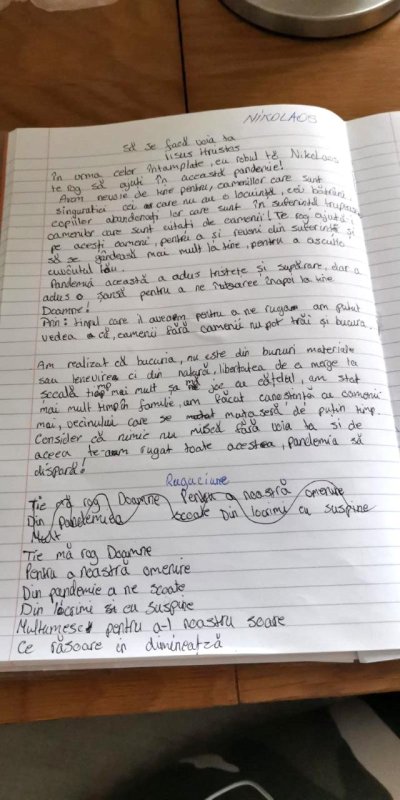 NIKOLAOS
Să se facă voia ta
Iisus Hristos
În urma celor întamplate, eu robul tă Nikolaos
te rog să ajuti în această pandemie!
Avem nevoie de tine pentru, oamenilor care sunt
singuratici cu care nu au o locuință, cei bătrâni,
copiilor abandonați lor care sunt în suferință trupească
oamenilor care sunt uitati de oamenii! Te rog ajută
pe acești oameni, pentru a și reveni din suferință și
să se gândească mai mult la tine, pentru a asculta
cuvântul tău.
Pandemia aceasta a adus tristețe și supărare, dar a
adus o șansă pentru a ne întoarcee înapoi la tine
Doamne!
Prin: timpul care îl aveam pentru a ne ruga am putut
vedea că, oamenii fără oamenii nu pot trăi și bucura.
Am realizat că bucuria, nu este din bunuri materiale
sau lenevirea ci din natură, libertatea de a merge la
școală timp mai mult să mă joc cu cățelul, am stat
mai mult timp în familie, am făcut cunoștință cu oamenii
mai, vecinului care se mutasesă de puțin timp.
Consider că nimic nu mișcă fără voia ta și de
aceea te-am rugat toate acestea, pandemia să
dispară!
Rugaciune
Ție mă rog Doamne Pentru a noastră omenire
Din pandemida scoate Din locrimi cu suspine
Mult
Ție mă rog Doamne
Pentru a noastră omenire
Din pandemie a ne scoate
Din lăcrimi și cu suspine
Multumesc pentru a-l nostru soare
Ce răsoare in dimineață